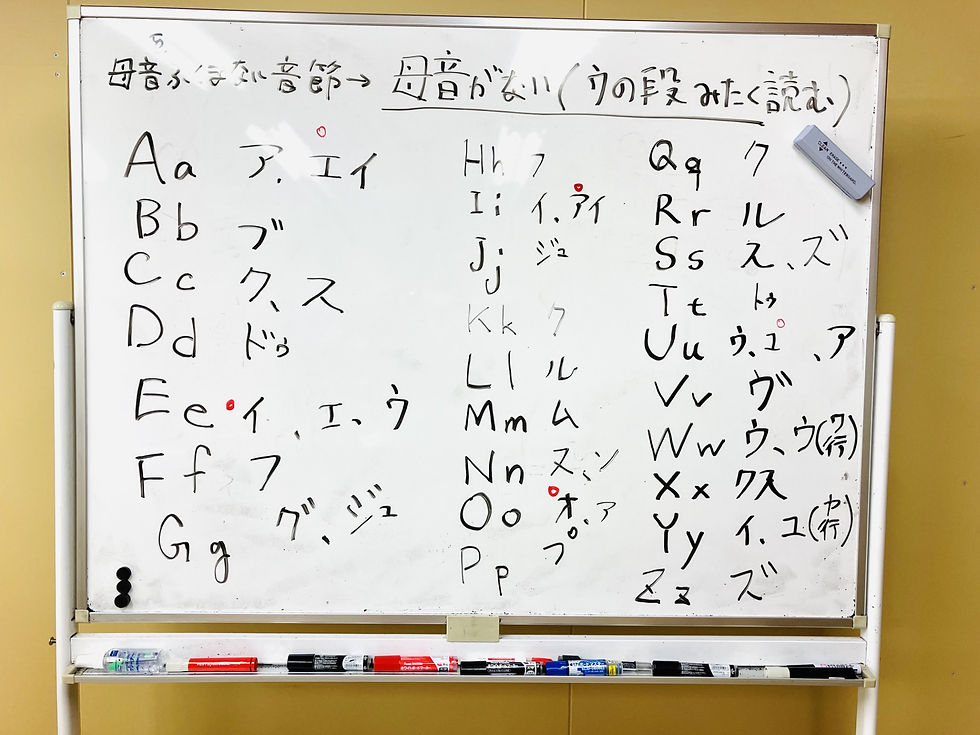 母音 ない音節→ 母音がない(ウの段みたく読む)
Aa ア、エイ
Bb ブ
Cc ク、ス
Dd ドゥ
Ee イ、エ、ウ
Ff フ
Gg グ、ジュ
Hh フ
Ii イ、アイ
Jj ジュ
Kk ク
Ll ル
Mm ム
Nn ヌ、ン
Oo オ、ア
Pp プ
Qq ク
Rr ル
Ss ス、ズ
Tt トゥ
Uu ウ、ユ、ア
Vv ヴ
Ww ウ、ウ(ワ行)
Xx クス
Yy イ、ユ(ヤ行)
Zz ズ